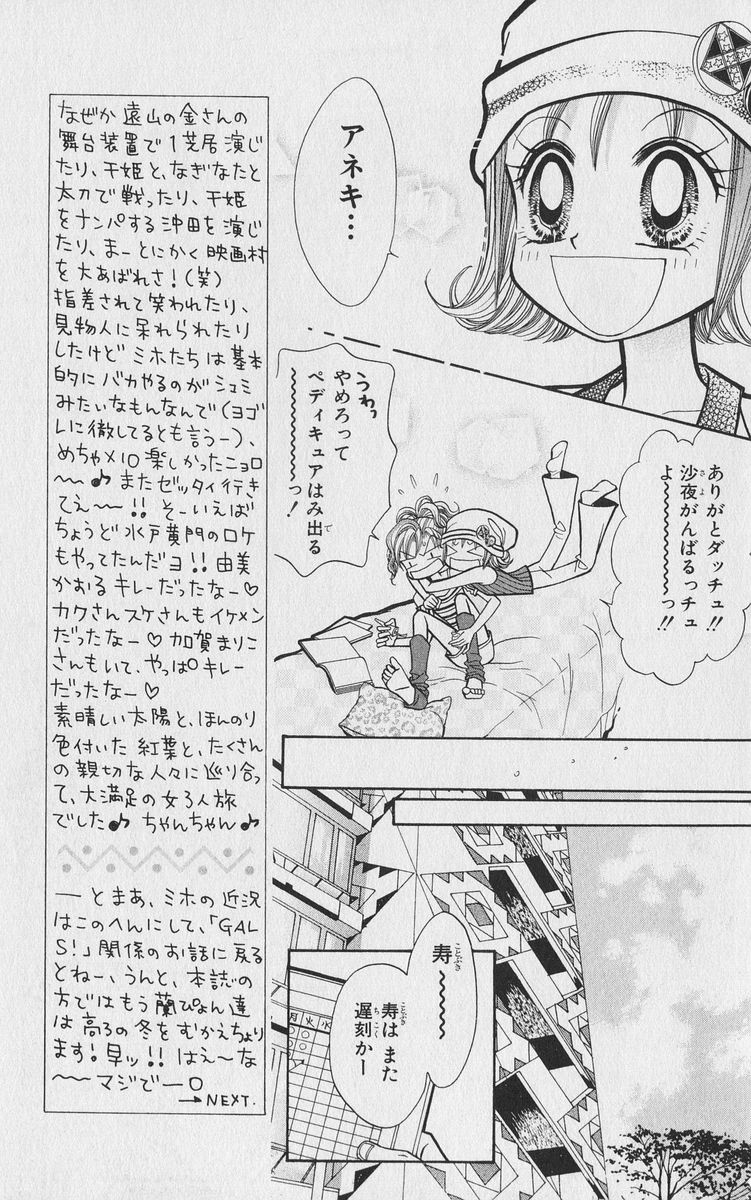 アネキ…
ありがとダッチュ!!
沙夜がんばるっチュ
よ〜〜〜っ!!
さよ
うわっ
やめろって
ペディキュアはみ出る
〜〜〜〜っ!
で
寿
〜〜〜
ことぶき
寿は また
遅刻かー
ことぶき
ちこく
月火水
なぜか遠山の金さんの
舞台装置で1芝居演じ
たり、千姫と、なぎなたと
太刀で戦ったり、千姫
をナンパする沖田を演じ
たり、まーとにかく映画村
を大あばれさ!(笑)
指差されて笑われたり、
見物人に呆れられたり
したけど ミホたちは基本
的にバカやるのがシュミ
みたいなもんなんで(ヨゴ
レに徹してるとも言うー)、
めちゃ×10楽しかったニョロ
〜〜♪ またゼッタイ行き
てえ〜〜!! そーいえば
ちょうど水戸黄門のロケ
もやってたんだヨ!! 由美
かおるキレーだったなー♡
カクさんスケさんもイケメン
だったなー♡ 加賀まりこ
さんもいて、やっぱ キレー
だったなー♡
素晴しい太陽と、ほんのり
色付いた紅葉と、たくさん
の親切な人々に巡り合っ
て、大満足の女3人旅
でした♪ ちゃんちゃん♪
―とまあ、ミホの近況
はこのへんにして、「GAL
S!」関係のお話に戻る
とねー、うんと、本誌の
方ではもう蘭ぴょん達
は高3の冬をむかえちょり
ます! 早ッ!! はえ〜な
〜〜マジでー。
→NEXT.